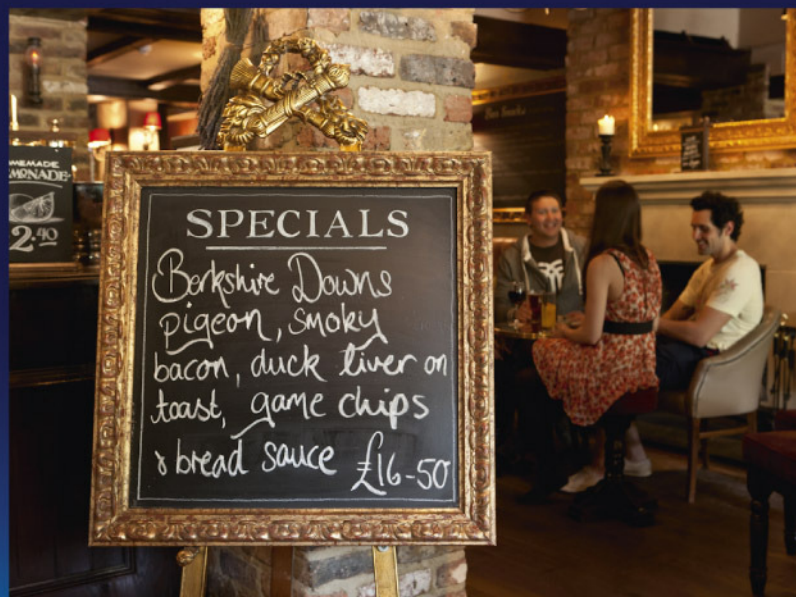 HOMEMADE
LEMONADE
2.40
SPECIALS
Berkshire Downs
pigeon, smoky
bacon, duck liver on
toast, game chips
& bread sauce £16-50
Bar Snacks